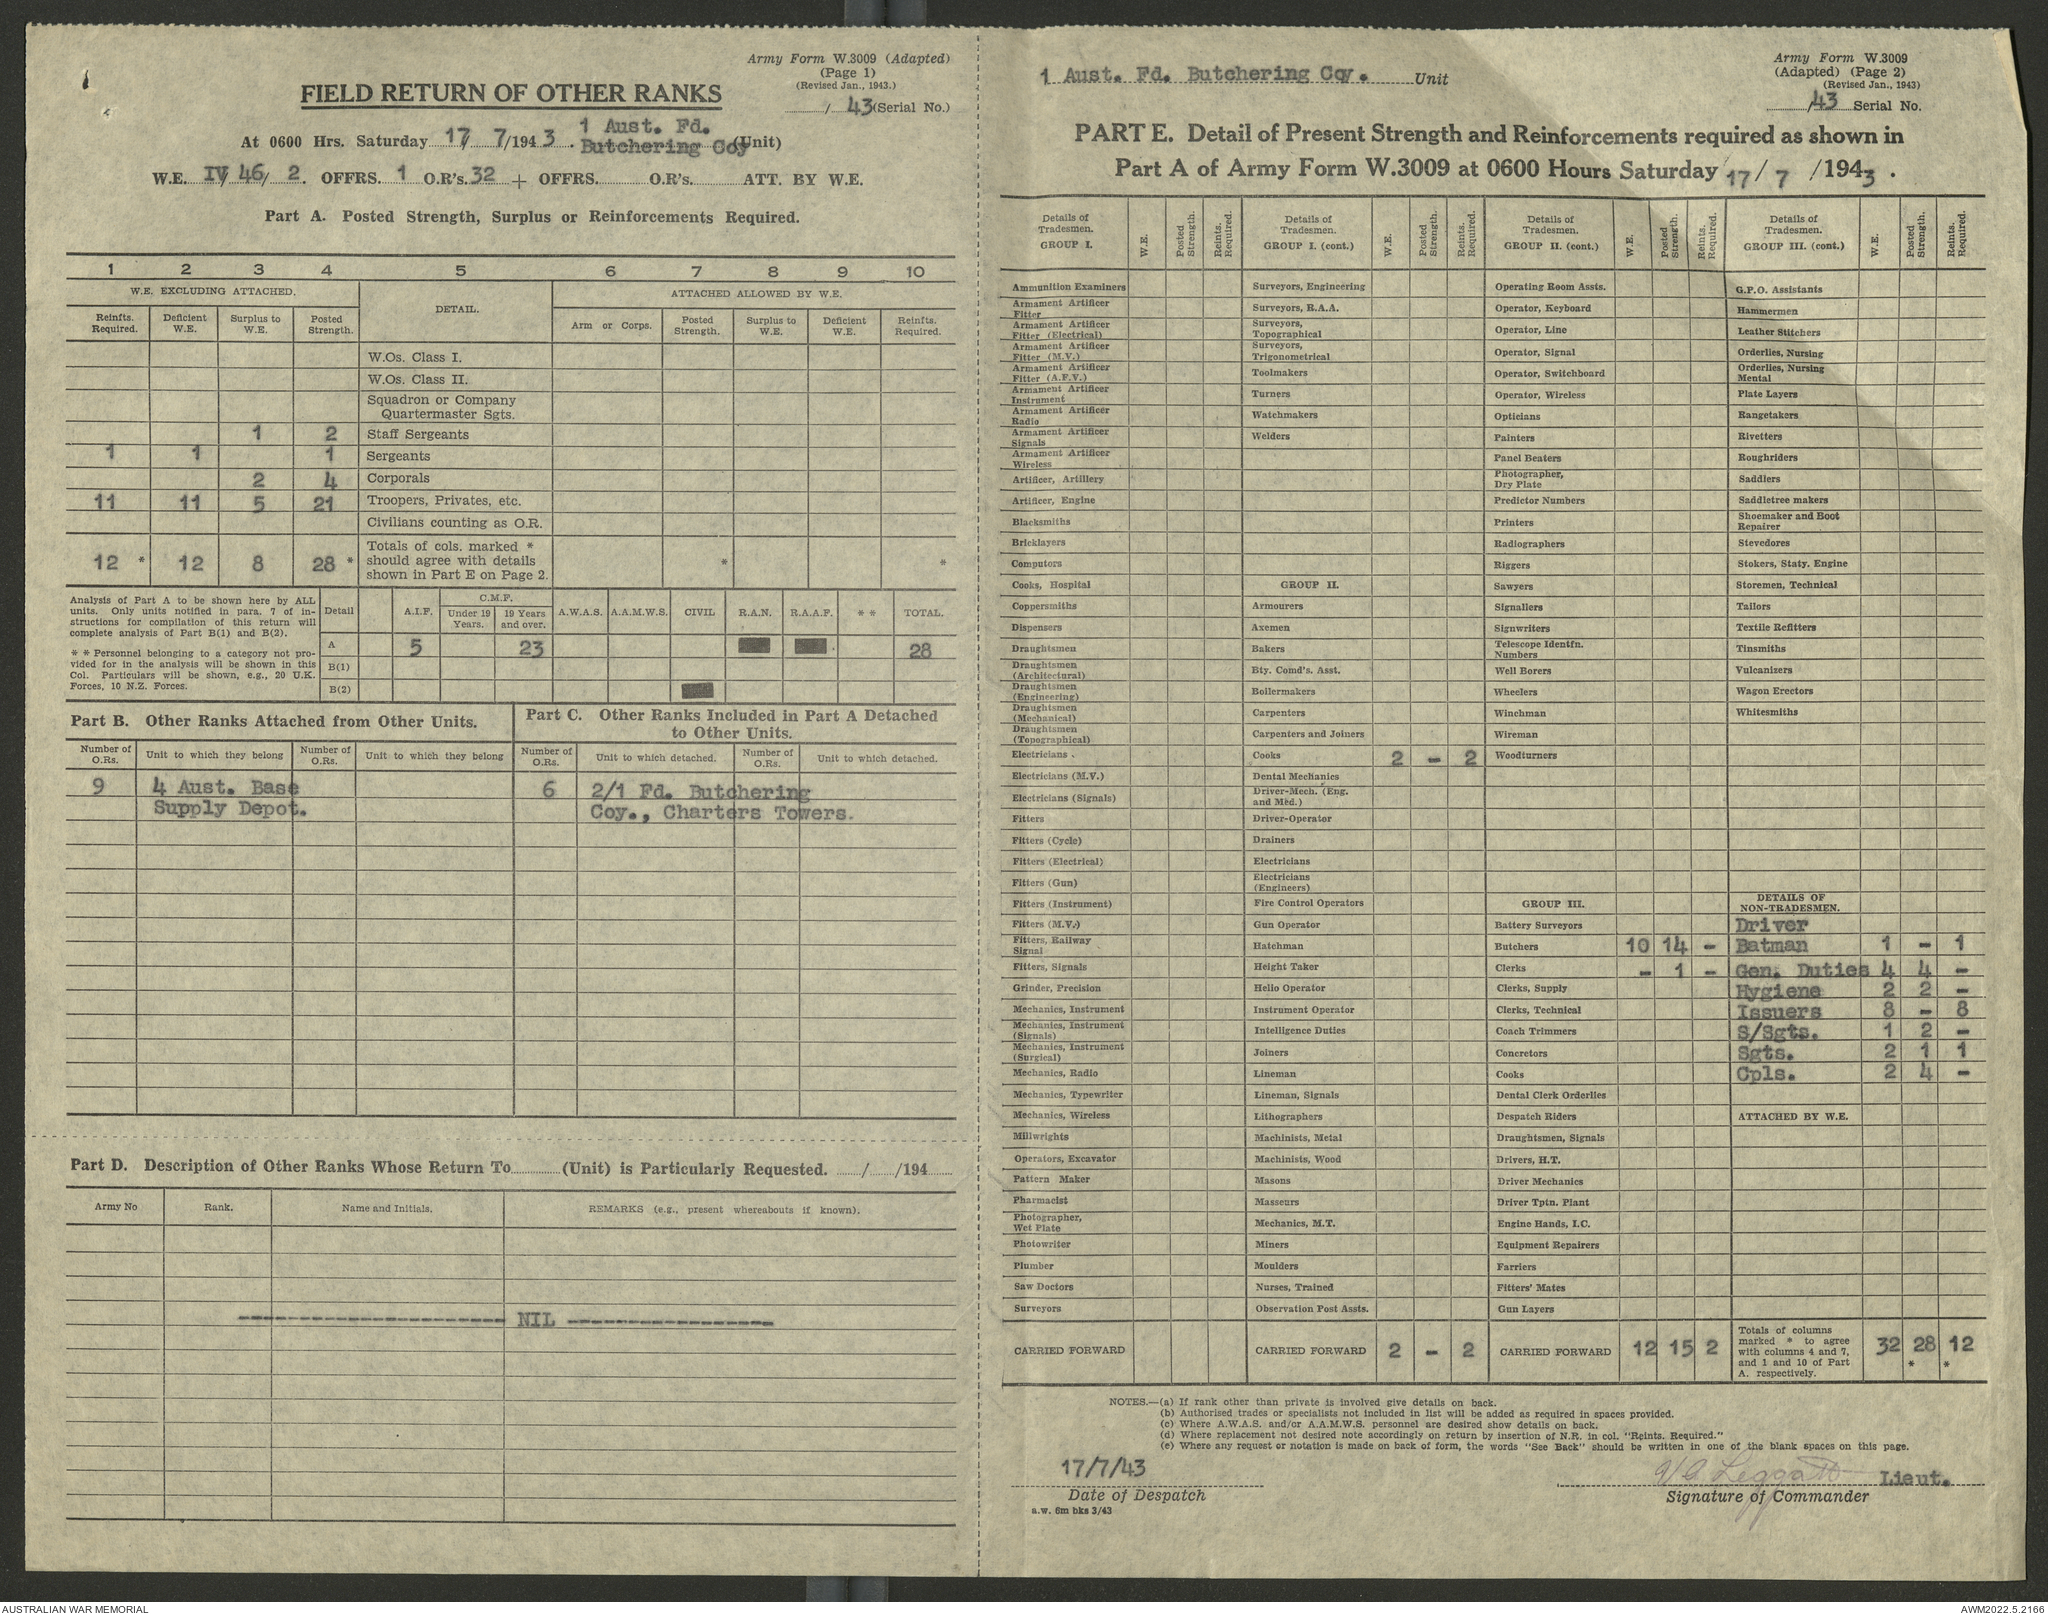 Army Form W.3009 (Adapted)
(Page 1)
(Revised Jan., 1943.)
/ 43 (Serial No.)
FIELD RETURN OF OTHER RANKS
At 0600 Hrs. Saturday 17/ 7/1943. 1 Aust. Fd. Butchering Coy (Unit)
W.E. IV/ 46/ 2. OFFRS. 1 O.R's. 32 + OFFRS. O.R's. ATT. BY W.E.
Part A. Posted Strength, Surplus or Reinforcements Required.
1 2 3 4 5 6 7 8 9 10
W.E. EXCLUDING ATTACHED. DETAIL. ATTACHED ALLOWED BY W.E.
Reinfts. Required. Deficient W.E. Surplus to W.E. Posted Strength. Arm or Corps. Posted Strength. Surplus to W.E. Deficient W.E. Reinfts. Required.
W.Os. Class I.
W.Os. Class II.
Squadron or Company
Quartermaster Sgts.
1 2 Staff Sergeants
1 1 1 Sergeants
2 4 Corporals
11 11 5 21 Troopers, Privates, etc.
Civilians counting as O.R.
12 * 12 8 28 * Totals of cols. marked * should agree with details shown in Part E on Page 2. * *
Analysis of Part A to be shown here by ALL
units. Only units notified in para. 7 of in-
structions for compilation of this return will
complete analysis of Part B(1) and B(2).
* * Personnel belonging to a category not pro-
vided for in the analysis will be shown in this
Col. Particulars will be shown, e.g., 20 U.K.
Forces, 10 N.Z. Forces.
Detail A.I.F. C.M.F. Under 19 Years. 19 Years and over. A.W.A.S. A.A.M.W.S. CIVIL R.A.N. R.A.A.F. * * TOTAL.
A 5 23 28
B(1)
B(2)
Part B. Other Ranks Attached from Other Units.
Number of O.Rs. Unit to which they belong Number of O.Rs. Unit to which they belong
9 4 Aust. Base
Supply Depot.
Part C. Other Ranks Included in Part A Detached
to Other Units.
Number of O.Rs. Unit to which detached. Number of O.Rs. Unit to which detached.
6 2/1 Fd. Butchering
Coy., Charters Towers.
Part D. Description of Other Ranks Whose Return To (Unit) is Particularly Requested. / /194
Army No Rank. Name and Initials. REMARKS (e.g., present whereabouts if known).
---------------------- NIL -----------------
1 Aust. Fd. Butchering Coy. Unit
Army Form W.3009
(Adapted) (Page 2)
(Revised Jan., 1943)
/43 Serial No.
PART E. Detail of Present Strength and Reinforcements required as shown in
Part A of Army Form W.3009 at 0600 Hours Saturday 17/ 7 /1943.
Details of Tradesmen. GROUP I. W.E. Posted Strength. Reints. Required.
Ammunition Examiners
Armament Artificer Fitter
Armament Artificer Fitter (Electrical)
Armament Artificer Fitter (M.V.)
Armament Artificer Fitter (A.F.V.)
Armament Artificer Instrument
Armament Artificer Radio
Armament Artificer Signals
Armament Artificer Wireless
Artificer, Artillery
Artificer, Engine
Blacksmiths
Bricklayers
Computors
Cooks, Hospital
Coppersmiths
Dispensers
Draughtsmen
Draughtsmen (Architectural)
Draughtsmen (Engineering)
Draughtsmen (Mechanical)
Draughtsmen (Topographical)
Electricians
Electricians (M.V.)
Electricians (Signals)
Fitters
Fitters (Cycle)
Fitters (Electrical)
Fitters (Gun)
Fitters (Instrument)
Fitters (M.V.)
Fitters, Railway Signal
Fitters, Signals
Grinder, Precision
Mechanics, Instrument
Mechanics, Instrument (Signals)
Mechanics, Instrument (Surgical)
Mechanics, Radio
Mechanics, Typewriter
Mechanics, Wireless
Millwrights
Operators, Excavator
Pattern Maker
Pharmacist
Photographer, Wet Plate
Photowriter
Plumber
Saw Doctors
Surveyors
CARRIED FORWARD
Details of Tradesmen. GROUP I. (cont.) W.E. Posted Strength. Reints. Required.
Surveyors, Engineering
Surveyors, R.A.A.
Surveyors, Topographical
Surveyors, Trigonometrical
Toolmakers
Turners
Watchmakers
Welders
GROUP II.
Armourers
Axemen
Bakers
Bty. Comd's. Asst.
Boilermakers
Carpenters
Carpenters and Joiners
Cooks 2 - 2
Dental Mechanics
Driver-Mech. (Eng. and Med.)
Driver-Operator
Drainers
Electricians
Electricians (Engineers)
Fire Control Operators
Gun Operator
Hatchman
Height Taker
Helio Operator
Instrument Operator
Intelligence Duties
Joiners
Lineman
Lineman, Signals
Lithographers
Machinists, Metal
Machinists, Wood
Masons
Masseurs
Mechanics, M.T.
Miners
Moulders
Nurses, Trained
Observation Post Assts.
CARRIED FORWARD 2 - 2
Details of Tradesmen. GROUP II. (cont.) W.E. Posted Strength. Reints. Required.
Operating Room Assts.
Operator, Keyboard
Operator, Line
Operator, Signal
Operator, Switchboard
Operator, Wireless
Opticians
Painters
Panel Beaters
Photographer, Dry Plate
Predictor Numbers
Printers
Radiographers
Riggers
Sawyers
Signallers
Signwriters
Telescope Identfn. Numbers
Well Borers
Wheelers
Winchman
Wireman
Woodturners
GROUP III.
Battery Surveyors
Butchers 10 14 -
Clerks - 1 -
Clerks, Supply
Clerks, Technical
Coach Trimmers
Concretors
Cooks
Dental Clerk Orderlies
Despatch Riders
Draughtsmen, Signals
Drivers, H.T.
Driver Mechanics
Driver Tptn. Plant
Engine Hands, I.C.
Equipment Repairers
Farriers
Fitters' Mates
Gun Layers
CARRIED FORWARD 12 15 2
Details of Tradesmen. GROUP III. (cont.) W.E. Posted Strength. Reints. Required.
G.P.O. Assistants
Hammermen
Leather Stitchers
Orderlies, Nursing
Orderlies, Nursing Mental
Plate Layers
Rangetakers
Rivetters
Roughriders
Saddlers
Saddletree makers
Shoemaker and Boot Repairer
Stevedores
Stokers, Staty. Engine
Storemen, Technical
Tailors
Textile Refitters
Tinsmiths
Vulcanizers
Wagon Erectors
Whitesmiths
DETAILS OF NON-TRADESMEN.
Driver
Batman 1 - 1
Gen. Duties 4 4 -
Hygiene 2 2 -
Issuers 8 - 8
S/Sgts. 1 2 -
Sgts. 2 1 1
Cpls. 2 4 -
ATTACHED BY W.E.
Totals of columns marked * to agree with columns 4 and 7, and 1 and 10 of Part A. respectively. 32 28 * 12 *
NOTES.—(a) If rank other than private is involved give details on back.
(b) Authorised trades or specialists not included in list will be added as required in spaces provided.
(c) Where A.W.A.S. and/or A.A.M.W.S. personnel are desired show details on back.
(d) Where replacement not desired note accordingly on return by insertion of N.R. in col. "Reints. Required."
(e) Where any request or notation is made on back of form, the words "See Back" should be written in one of the blank spaces on this page.
17/7/43
Date of Despatch
a.w. 6m bks 3/43
Leggatt Lieut.
Signature of Commander
AUSTRALIAN WAR MEMORIAL
AWM2022.5.2166